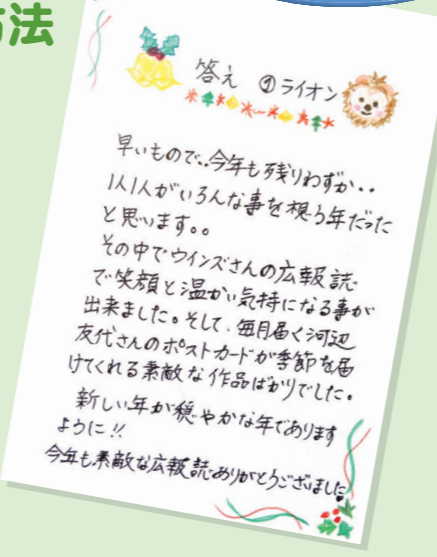 方法
答え ①ライオン
早いもので‥今年も残りわずか‥
1人1人がいろんな事を想う年だった
と思います。。
その中でウインズさんの広報誌
で笑顔と温かい気持になる事が
出来ました。そして、毎月届く河辺
友代さんのポストカードが季節を届
けてくれる素敵な作品ばかりでした。
新しい年が穏やかな年であります
ように!!
今年も素敵な広報誌ありがとうございました